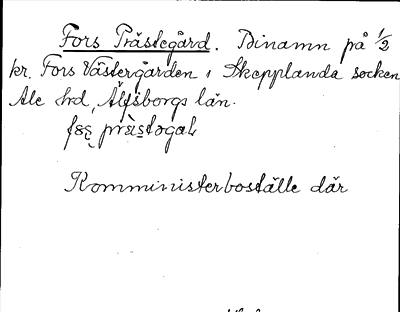 Fors Prästegård. Binamn på 1/2
kr. Fors Västergården i Skepplanda socken
Ale hrd, Älfsborgs län.
Komministerboställe där